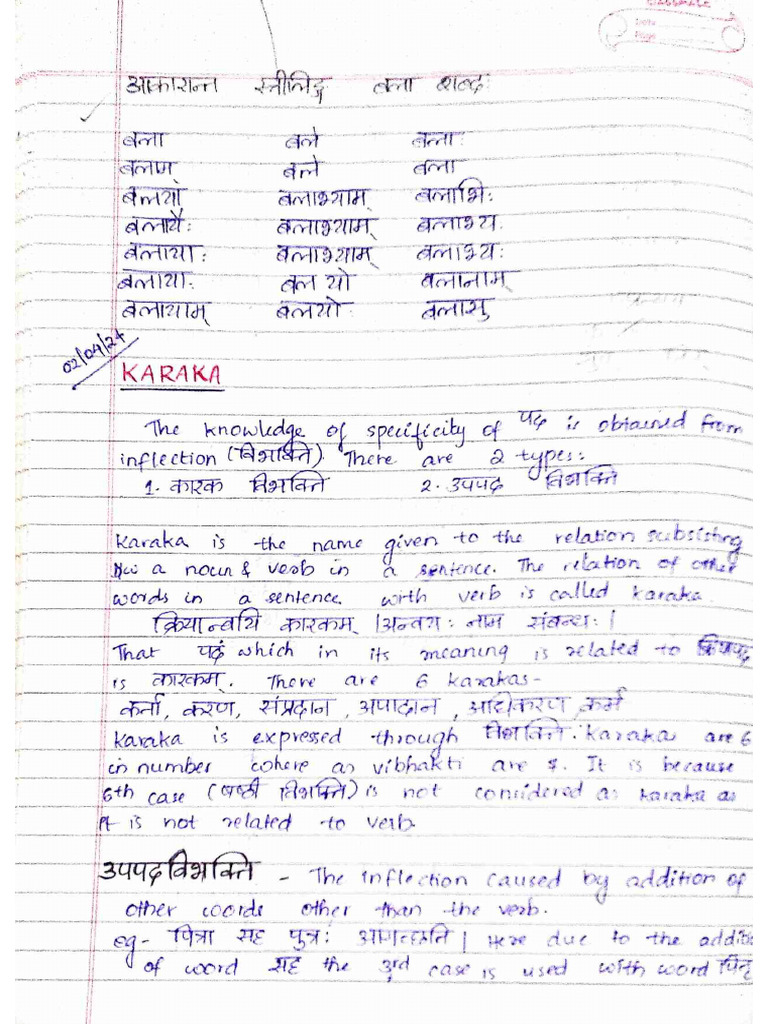 classmate
Date
Page
आकारान्त स्त्रीलिङ्ग बला शब्दः
बला बले बलाः
बलाम् बले बला
बलया बलाभ्याम् बलाभिः
बलायैः बलाभ्याम् बलाभ्य.
बलायाः बलाभ्याम् बलाभ्यः
बलायाः बल यो बलानाम्
बलायाम् बलयोः बलासु
02/04/24
KARAKA
The knowledge of specificity of पद is obtained from
inflection (विभक्ति). There are 2 types:
1. कारक विभक्ति 2. उपपद विभक्ति
Karaka is the name given to the relation subsisting
b/w a noun & verb in a sentence. The relation of other
words in a sentence with verb is called karaka.
क्रियान्वयि कारकम् | अन्वयः नाम संबन्धः |
That पदं which in its meaning is related to क्रियापद
is कारकम्. There are 6 karakas-
कर्ता, करण, संप्रदान, अपादान, अधिकरण, कर्म
karaka is expressed through विभक्ति. Karaka are 6
in number where as vibhakti are 7. It is because
6th case (षष्ठी विभक्ति) is not considered as karaka as
it is not related to verb.
उपपदविभक्ति - The inflection caused by addition of
other words other than the verb.
eg- पित्रा सह पुत्रः आगच्छति | Here due to the additi
of word सह the 3rd case is used with word पितृ